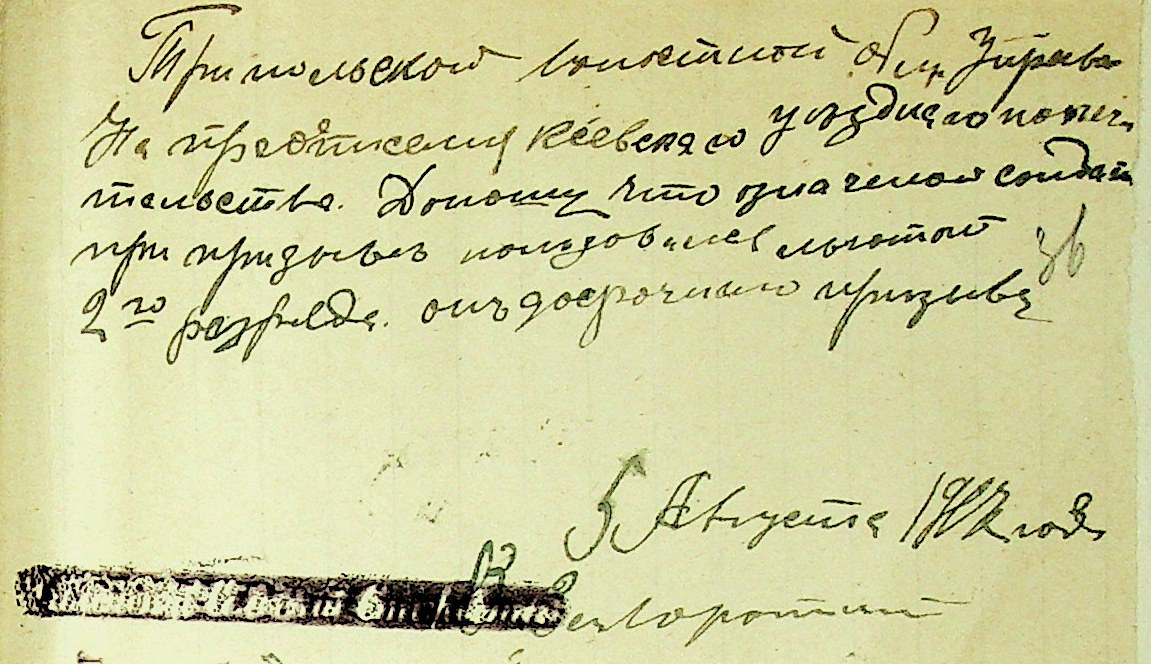 Трипольской волостной Общ. Управе
На предписания Кіевскаго уѣзднаго попечи
тельства. Доношу что означеной солдатъ
при призывѣ пользовался льготой
2го разряда. онъ досрочнаго призыва
5 Августа 1917 года